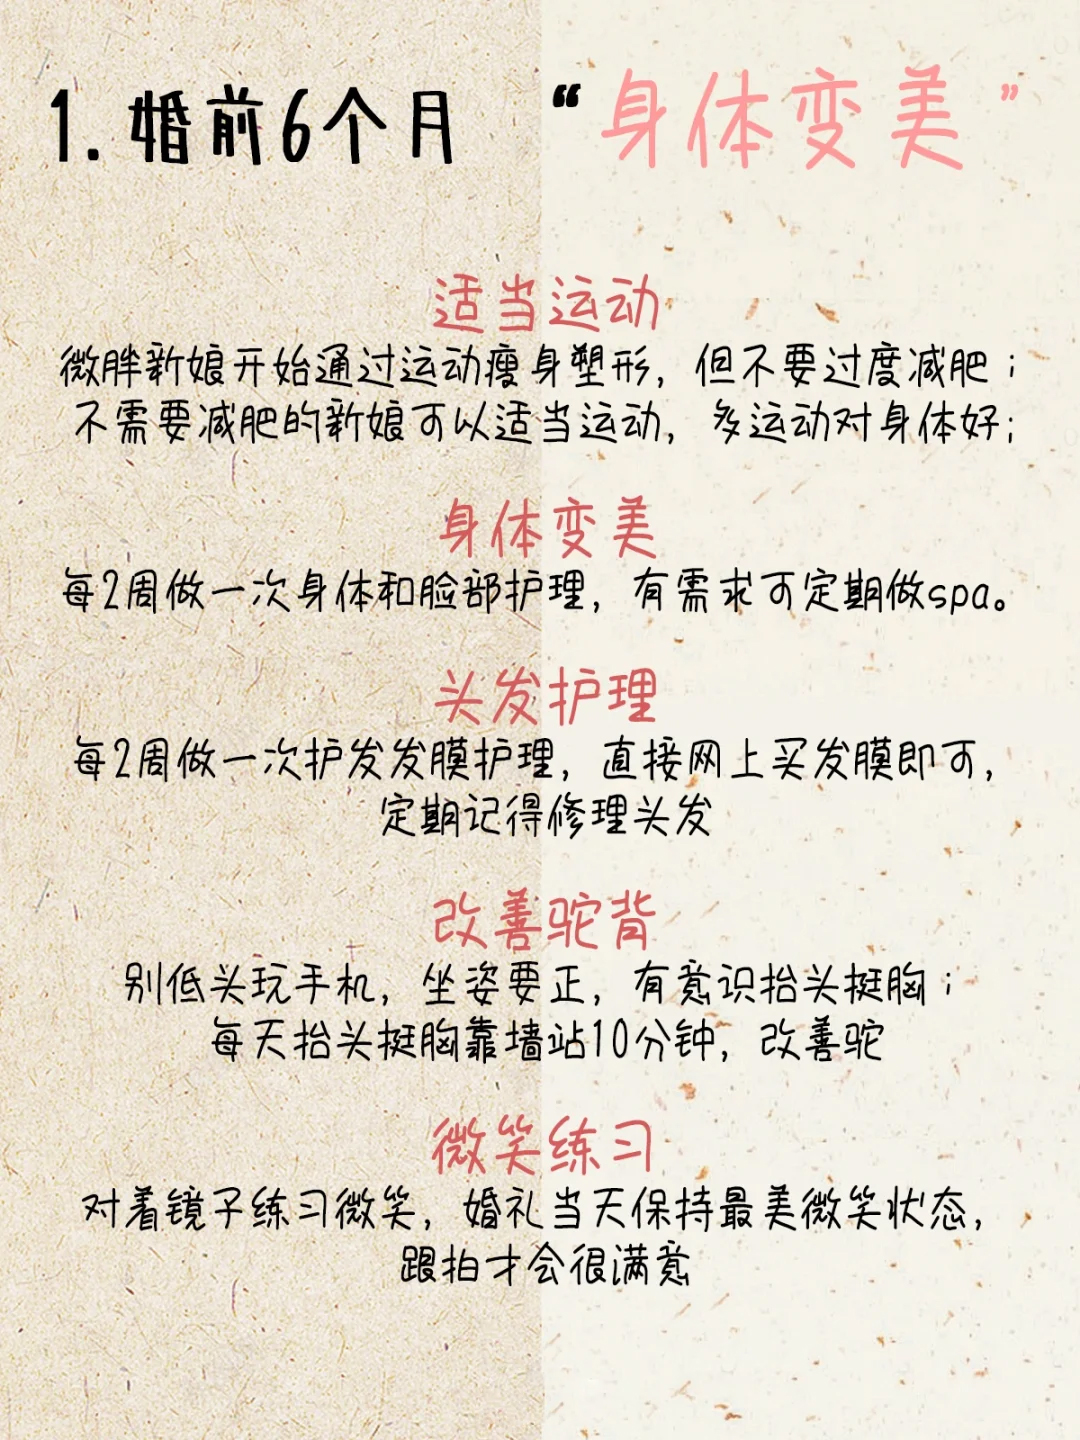 1. 婚前6个月 “身体变美”
适当运动
微胖新娘开始通过运动瘦身塑形，但不要过度减肥；
不需要减肥的新娘可以适当运动，多运动对身体好；
身体变美
每2周做一次身体和脸部护理，有需求可定期做spa。
头发护理
每2周做一次护发发膜护理，直接网上买发膜即可，
定期记得修理头发
改善驼背
别低头玩手机，坐姿要正，有意识抬头挺胸；
每天抬头挺胸靠墙站10分钟，改善驼
微笑练习
对着镜子练习微笑，婚礼当天保持最美微笑状态，
跟拍才会很满意